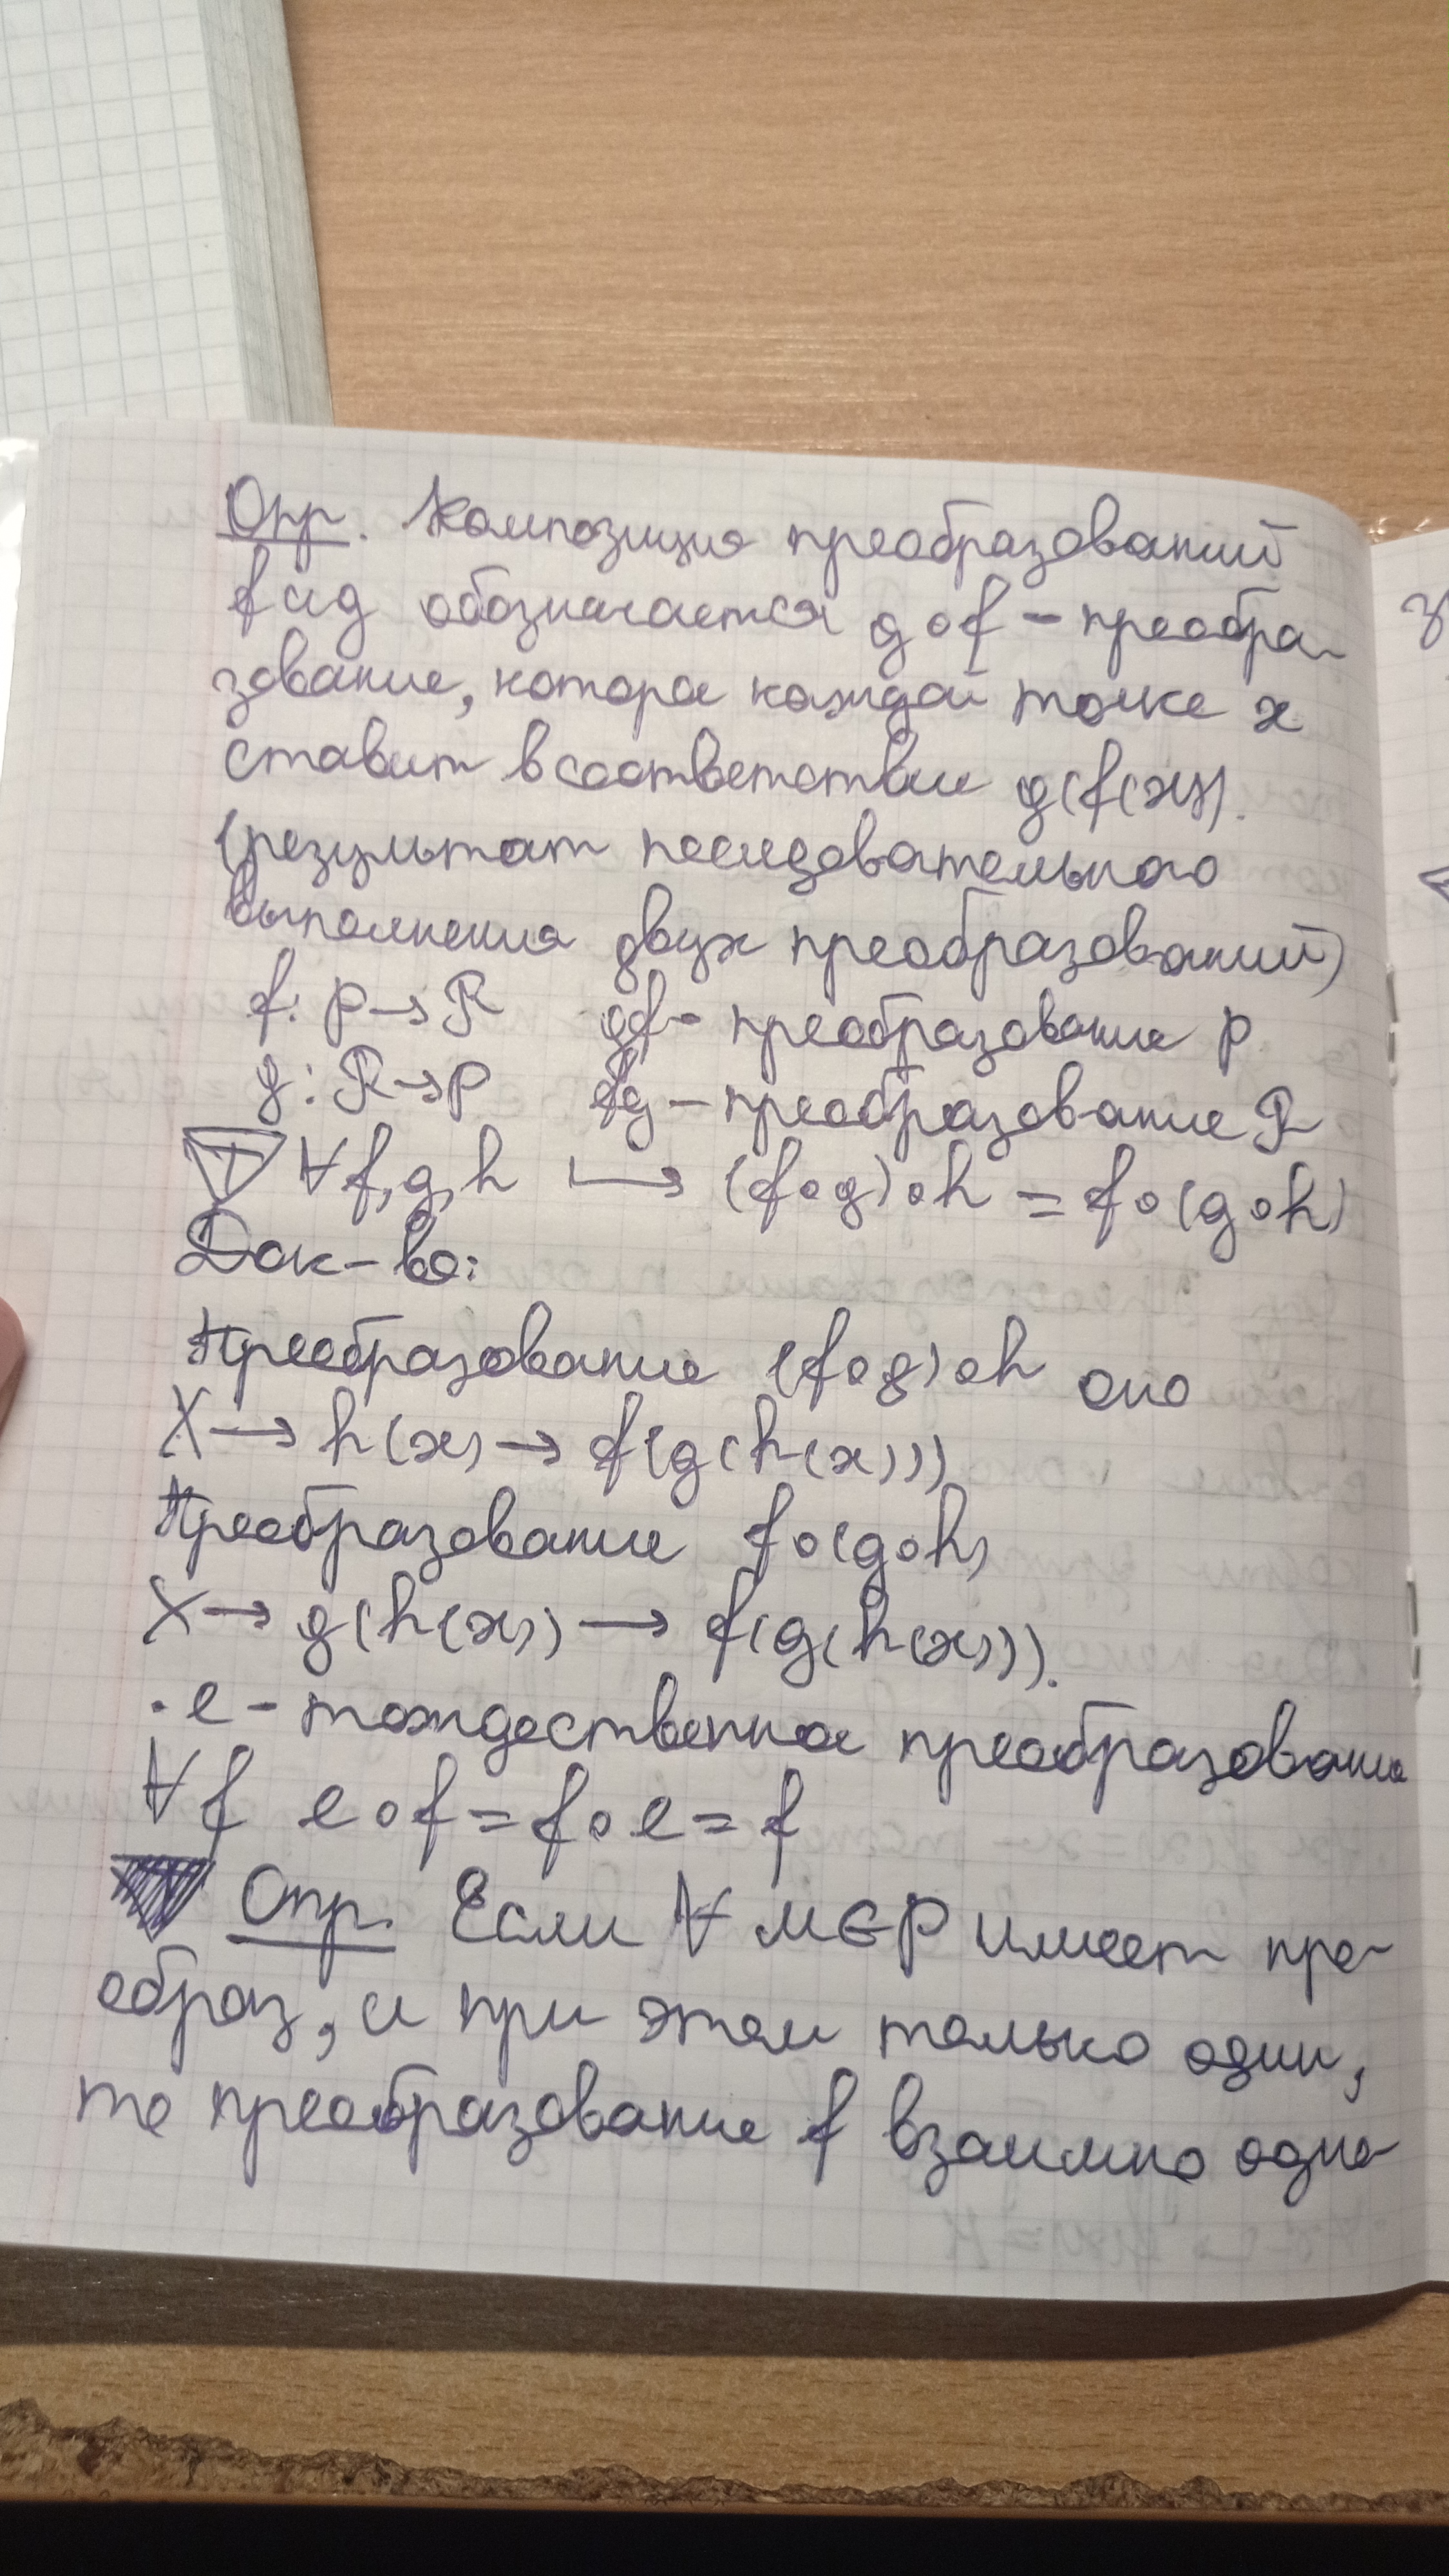 Опр. Композиция преобразований
f и g обозначается g∘f – преобра-
зование, которое каждой точке x
ставит в соответствие g(f(x)).
(результат последовательного
выполнения двух преобразований)
f: P → R gf – преобразование P
g: R → P fg – преобразование R
T ∀ f, g, h ↦ (f∘g)∘h = f∘(g∘h)
Док-во:
Преобразование (f∘g)∘h оно
X → h(x) → f(g(h(x)))
Преобразование f∘(g∘h)
X → g(h(x)) → f(g(h(x))).
· e – тождественное преобразование
∀ f e∘f = f∘e = f
Опр. Если ∀ M∈P имеет про-
образ, и при этом только один,
то преобразование f взаимно одно-